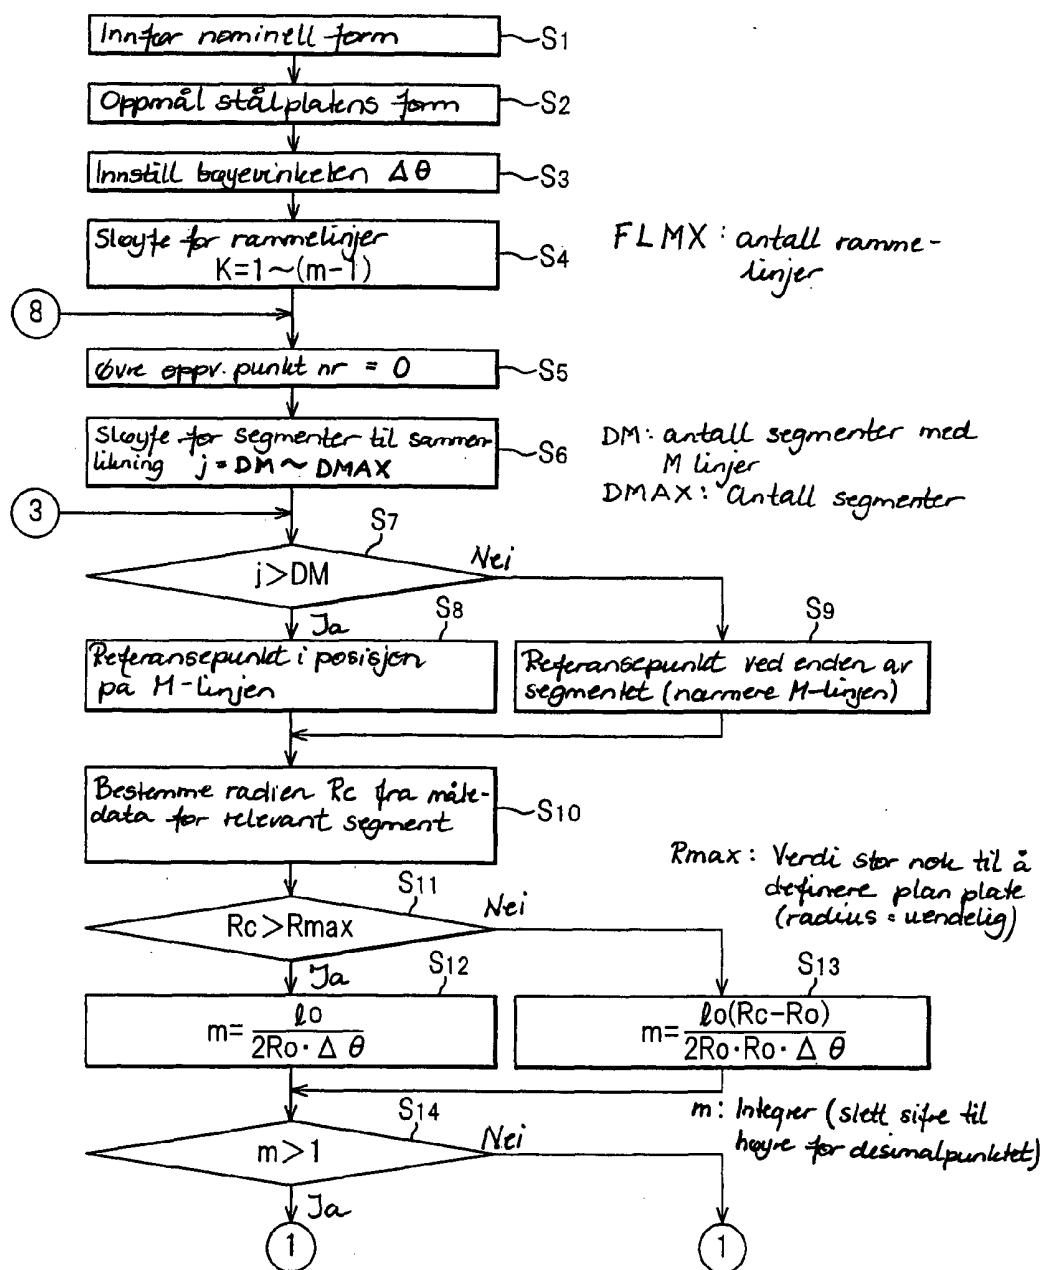 Innfør nominell form
S1
Oppmål stålplatens form
S2
Innstill bøyevinkelen Δθ
S3
Sløyfe for rammelinjer
K=1~(m-1)
S4
FLMX: antall ramme-
linjer
8
Øvre oppv. punkt nr = 0
S5
Sløyfe for segmenter til sammen-
likning j = DM ~ DMAX
S6
DM: antall segmenter med
M linjer
DMAX: Antall segmenter
3
S7
j>DM
Nei
Ja
S8
Referansepunkt i posisjon
på M-linjen
S9
Referansepunkt ved enden av
segmentet (nærmere M-linjen)
Bestemme radien Rc fra måle-
data for relevant segment
S10
Rmax: Verdi stor nok til å
definere plan plate
(radius = uendelig)
S11
Rc>Rmax
Nei
Ja
S12
m= ℓo / 2Ro·Δθ
S13
m= ℓo(Rc-Ro) / 2Ro·Ro·Δθ
m: Integrer (slett sifre til
høyre for desimalpunktet)
S14
m>1
Nei
Ja
1
1